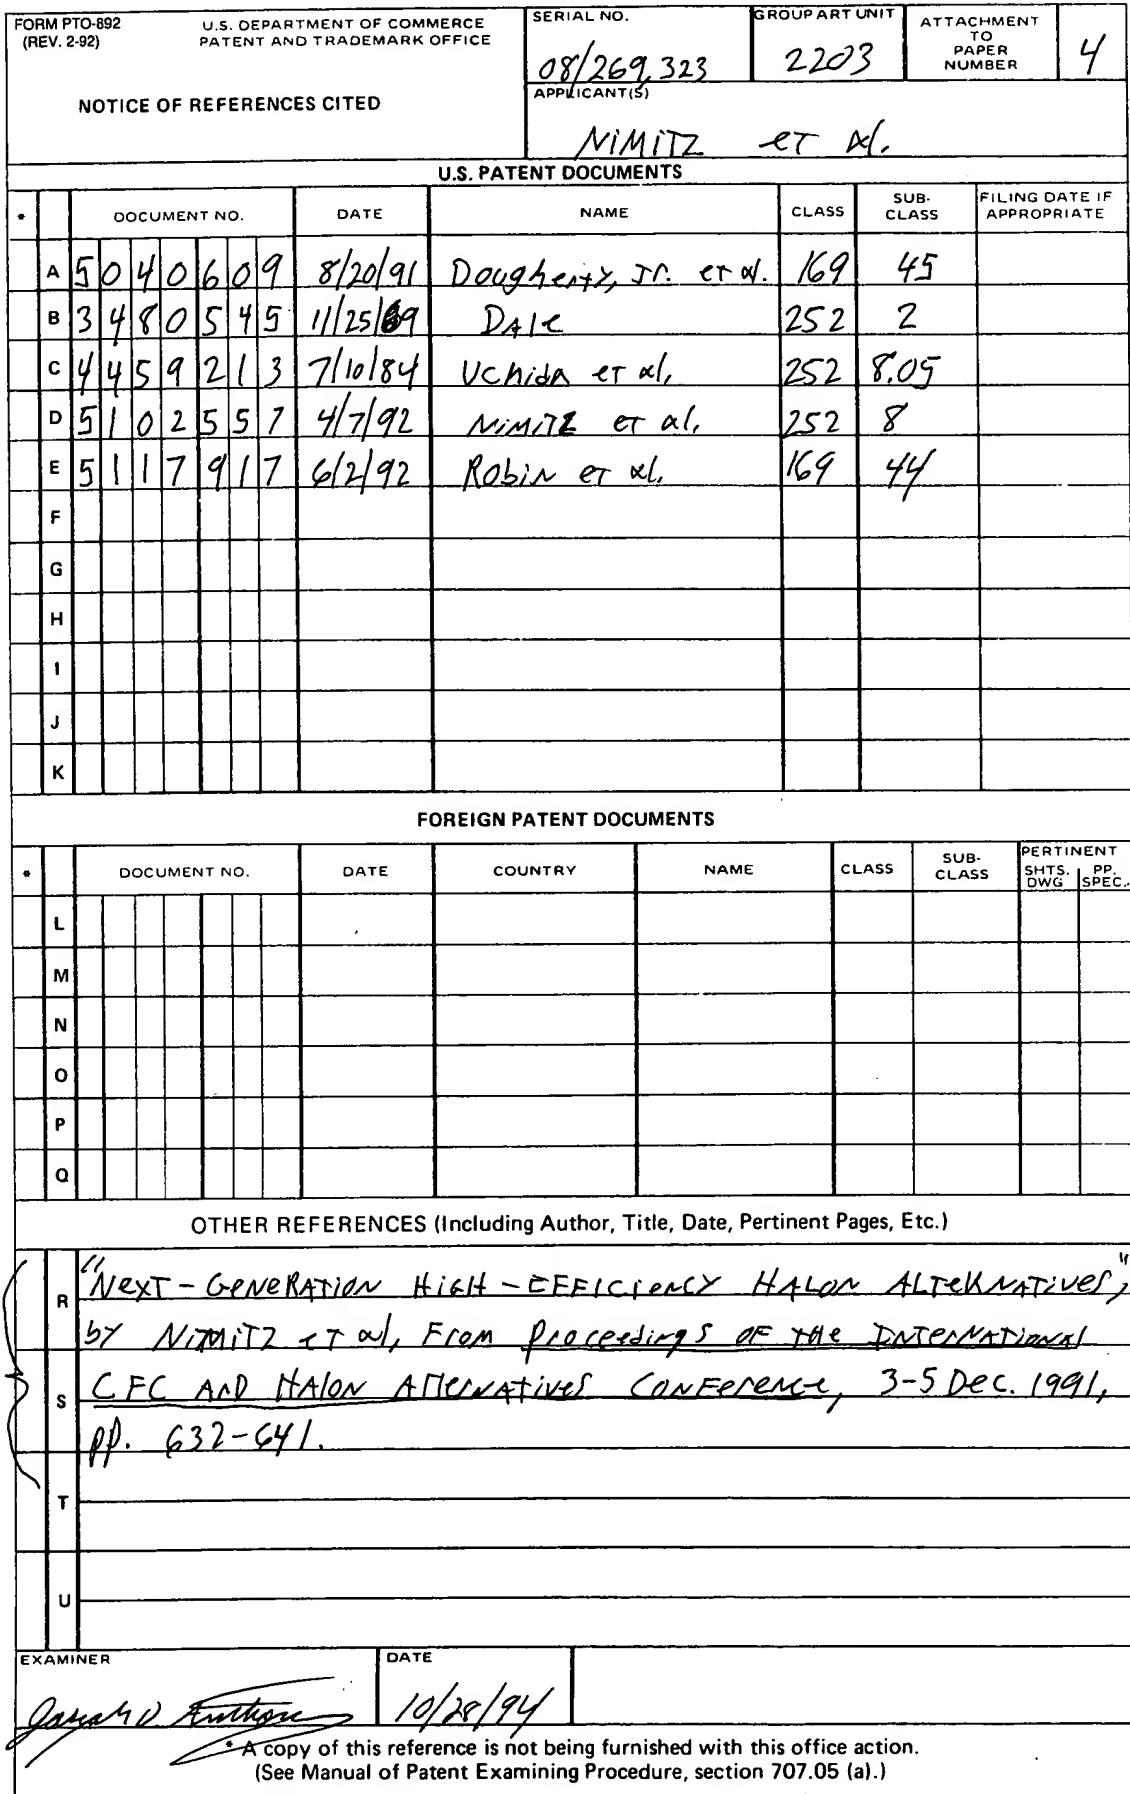 FORM PTO-892 U.S. DEPARTMENT OF COMMERCE
(REV. 2-92) PATENT AND TRADEMARK OFFICE
NOTICE OF REFERENCES CITED
SERIAL NO.
08/269,323
GROUP ART UNIT
2203
ATTACHMENT
TO
PAPER
NUMBER
4
APPLICANT(S)
NIMITZ et al.
U.S. PATENT DOCUMENTS
* DOCUMENT NO. DATE NAME CLASS SUB-CLASS FILING DATE IF APPROPRIATE
A 5040609 8/20/91 Dougherty, Jr. et al. 169 45
B 3480545 11/25/69 Dale 252 2
C 4459213 7/10/84 Uchida et al. 252 8.05
D 5102557 4/7/92 NIMITZ et al. 252 8
E 5117917 6/2/92 Robin et al. 169 44
F
G
H
I
J
K
FOREIGN PATENT DOCUMENTS
* DOCUMENT NO. DATE COUNTRY NAME CLASS SUB-CLASS PERTINENT SHTS. DWG PP. SPEC.
L
M
N
O
P
Q
OTHER REFERENCES (Including Author, Title, Date, Pertinent Pages, Etc.)
R "Next-Generation High-Efficiency Halon Alternatives,"
by Nimitz et al, From Proceedings of the International
S CFC and Halon Alternatives Conference, 3-5 Dec. 1991,
pp. 632-641.
T
U
EXAMINER DATE
10/28/94
* A copy of this reference is not being furnished with this office action.
(See Manual of Patent Examining Procedure, section 707.05 (a).)